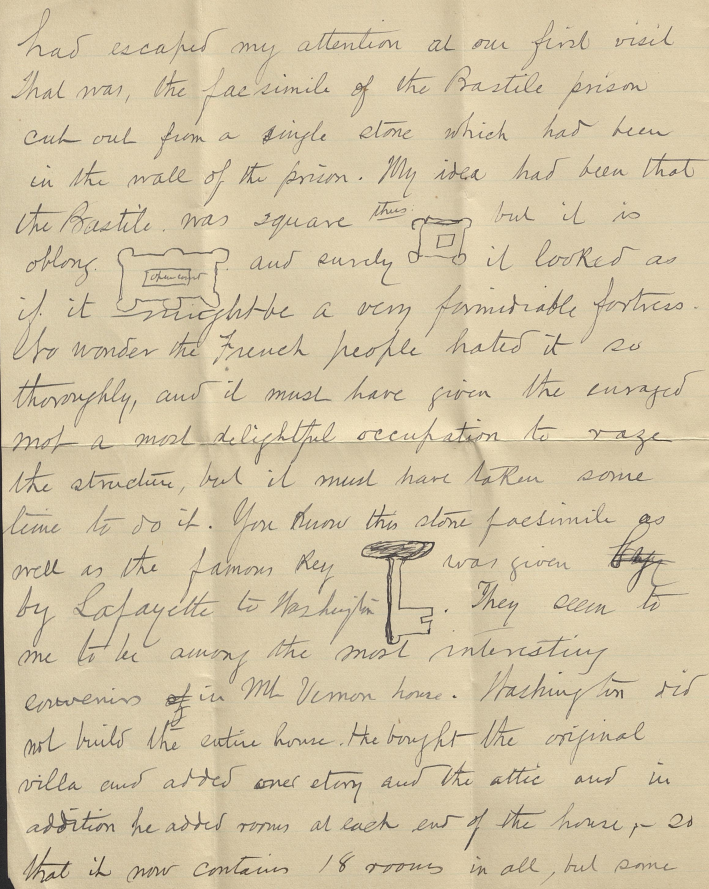 had escaped my attention at our first visit
That was, the facsimile of the Bastile prison
cut out from a single stone which had been
in the wall of the prison. My idea had been that
the Bastile. was square thus but it is
oblong. and surely it looked as
if it might be a very formidiable fortress.
No wonder the French people hated it so
thoroughly, and it must have given the enraged
mob a most delightful occupation to raze
the structure, but it must have taken some
time to do it. You know this stone facsimile as
well as the famous Key was given
by Lafayette to Washington. They seem to
me to be among the most interesting
souvenirs of in Mt Vernon house. Washington did
not build the entire house. He bought the original
villa and added one story and the attic and in
addition he added rooms at each end of the house, - so
that it now contains 18 rooms in all, but some